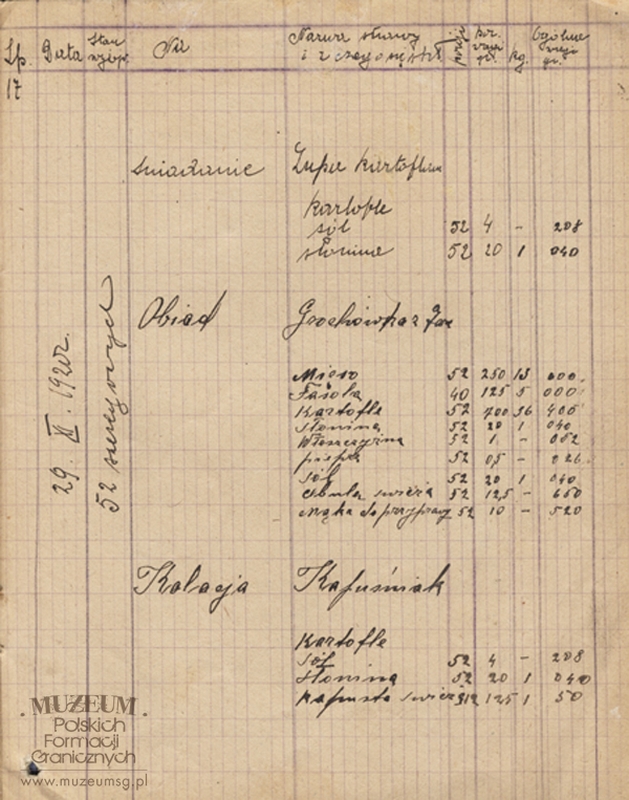 Lp. Data Stan Na Nazwa strawy kg. Ogólna
17 i z czego
śniadanie Zupa kartoflana
kartofle
sól 52 4 - 208
słonina 52 20 1 040
Obiad Grochówka z
Mięso 52 250 13 000
Fasola 40 125 5 000
Kartofle 52 700 36 405
Słonina 52 20 1 040
Włoszczyzna 52 1 - 052
pieprz 52 05 - 026
Sól 52 20 1 040
Cebula świeża 52 12,5 - 650
Mąka do przyprawy 52 10 - 520
29. XI. 1920r.
52 szeregowych
Kolacja Kapuśniak
Kartofle
Sól 52 4 - 208
Słonina 52 20 1 040
Kapusta świeża 12 125 1 50
MUZEUM
Polskich
Formacji
Granicznych
www.muzeumsg.pl